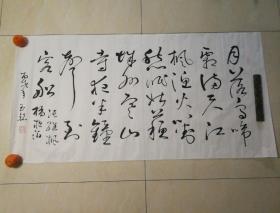 月落乌啼
霜满天江
枫渔火对
愁眠姑苏
城外寒山
寺夜半钟
声到
客船
张继枫
桥夜泊